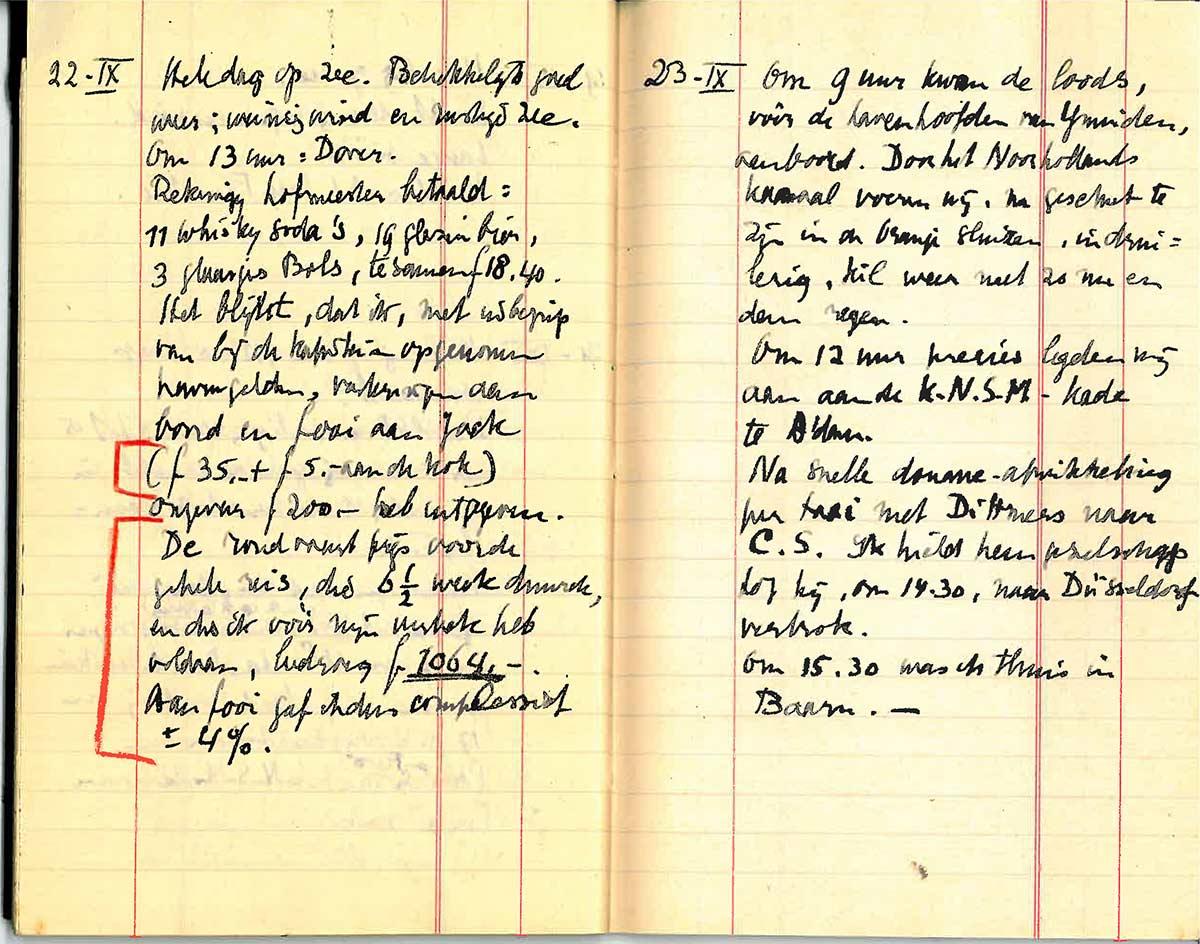 22-IX Hele dag op zee. Betrekkelijk goed
weer; weinig wind en rustige zee.
Om 13 uur = Dover.
Rekening hofmeester betaald =
11 whisky soda's, 19 glazen bier,
3 glaasjes Bols, tesamen f 18.40.
Het blijkt, dat ik, met inbegrip
van bij de kapitein opgenomen
havengelden, verteringen aan
boord en fooi aan Jack
(f 35.- + f 5.- aan de kok)
ongeveer f 200.- heb uitgegeven.
De rondvaart prijs voor de
gehele reis, die 6 1/2 week duurde,
en die ik vóór mijn vertrek heb
voldaan, bedroeg f 1064.-.
Aan fooi gaf ik dus
± 4%.
23-IX Om 9 uur kwam de loods,
vóór de havenhoofden van IJmuiden,
aan boord. Door het Noorhollands
kanaal voeren wij, na geschut te
zijn in de Oranje sluizen, in drui-
lerig, kil weer met zo nu en
dan regen.
Om 12 uur precies legden wij
aan aan de K.N.S.M - kade
te A'dam.
Na snelle douane-afwikkeling
per taxi met Dittmers naar
C.S. Ik hield hem gezelschap
tot hij, om 14.30, naar Düsseldorf
vertrok.
Om 15.30 was ik thuis in
Baarn. —